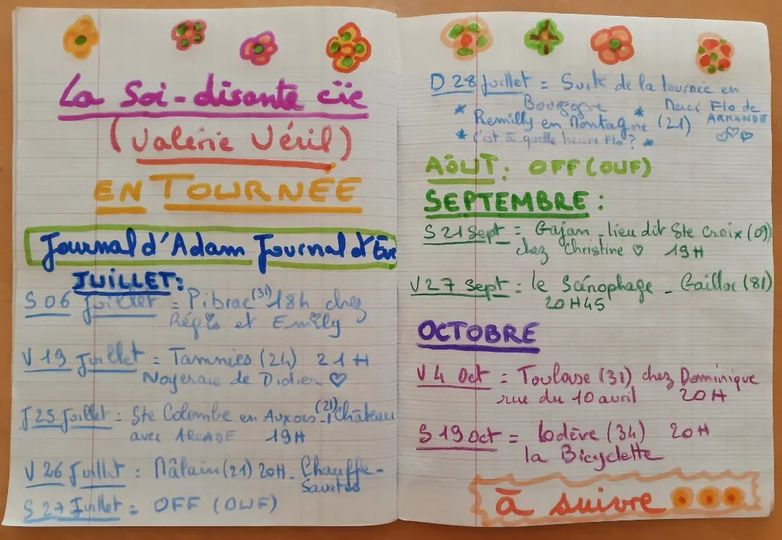 La Soi-disante cie
(Valérie Véril)
EN TOURNÉE
Journal d'Adam Journal d'Ève
JUILLET:
S 06 Juillet = Pibrac (31) 18h chez
Régis et Emily
V 19 Juillet = Tamniès (24) 21H
Noyeraie de Didier ♡
J 25 Juillet = Ste Colombe en Auxois (21) Château
avec ARCADE 19H
V 26 Juillet = Mâlain (21) 20H - Chauffe-
Savates
S 27 Juillet = OFF (OUF)
D 28 Juillet = Suite de la tournée en
Bourgogne
Merci Flo de
ARMANDE
* Remilly en Montagne * (21)
* c'est à quelle heure Flo ? *
AOÛT : OFF (OUF)
SEPTEMBRE :
S 21 Sept = Gajan - lieu dit Ste Croix (09)
chez Christine ♡ 19H
V 27 Sept = le Scénophage - Gaillac (81)
20H45
OCTOBRE
V 4 Oct = Toulouse (31) chez Dominique
rue du 10 avril 20H
S 19 Oct = Lodève (34) 20H
la Bicyclette
à suivre